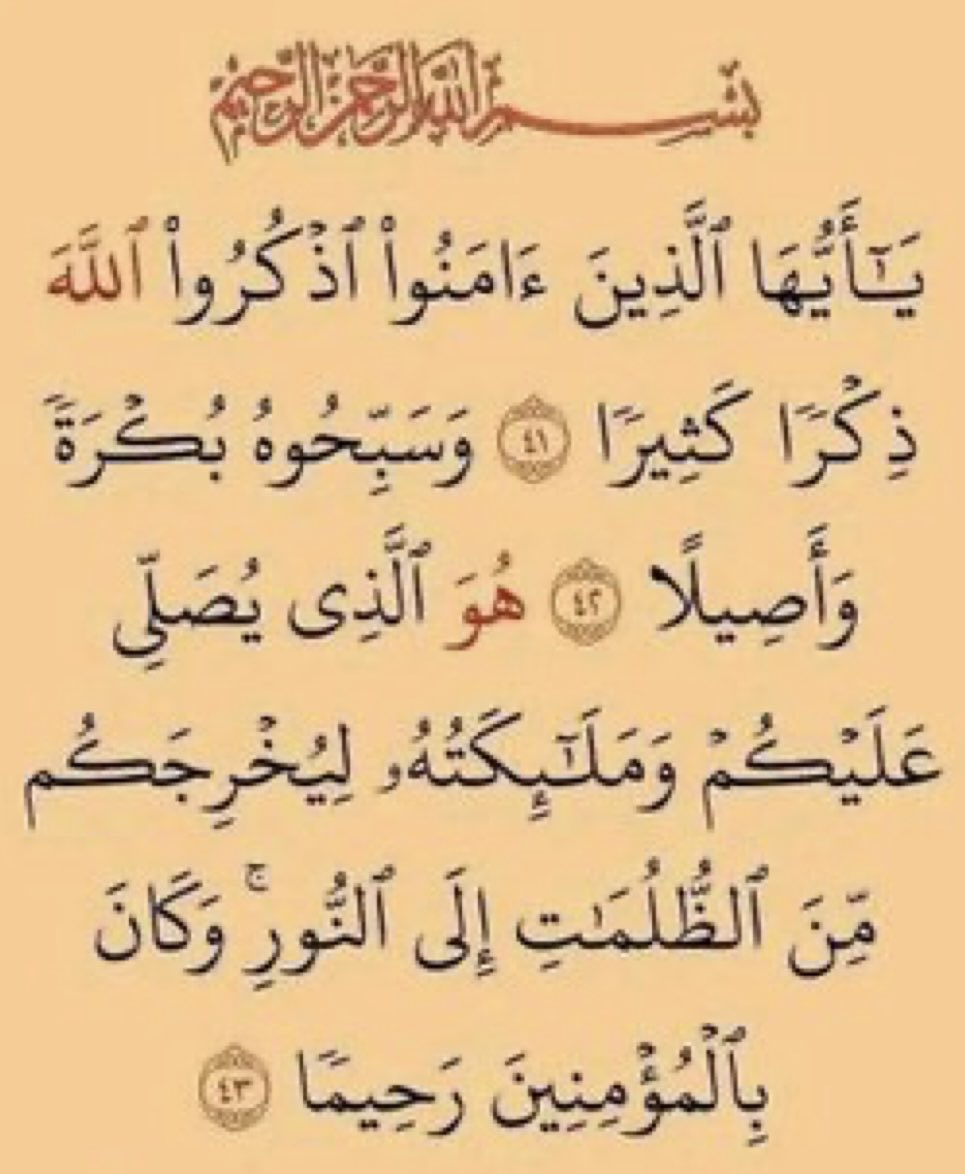 بِسْمِ ٱللَّهِ ٱلرَّحْمَٰنِ ٱلرَّحِيمِ
يَـٰٓأَيُّهَا ٱلَّذِينَ ءَامَنُوا۟ ٱذْكُرُوا۟ ٱللَّهَ
ذِكْرًا كَثِيرًا ٤١ وَسَبِّحُوهُ بُكْرَةً
وَأَصِيلًا ٤٢ هُوَ ٱلَّذِى يُصَلِّى
عَلَيْكُمْ وَمَلَـٰٓئِكَتُهُۥ لِيُخْرِجَكُم
مِّنَ ٱلظُّلُمَـٰتِ إِلَى ٱلنُّورِ ۚ وَكَانَ
بِٱلْمُؤْمِنِينَ رَحِيمًا ٤٣